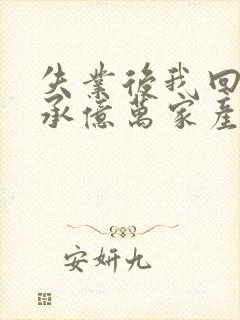 失業後我回
承億萬家產
安妍九